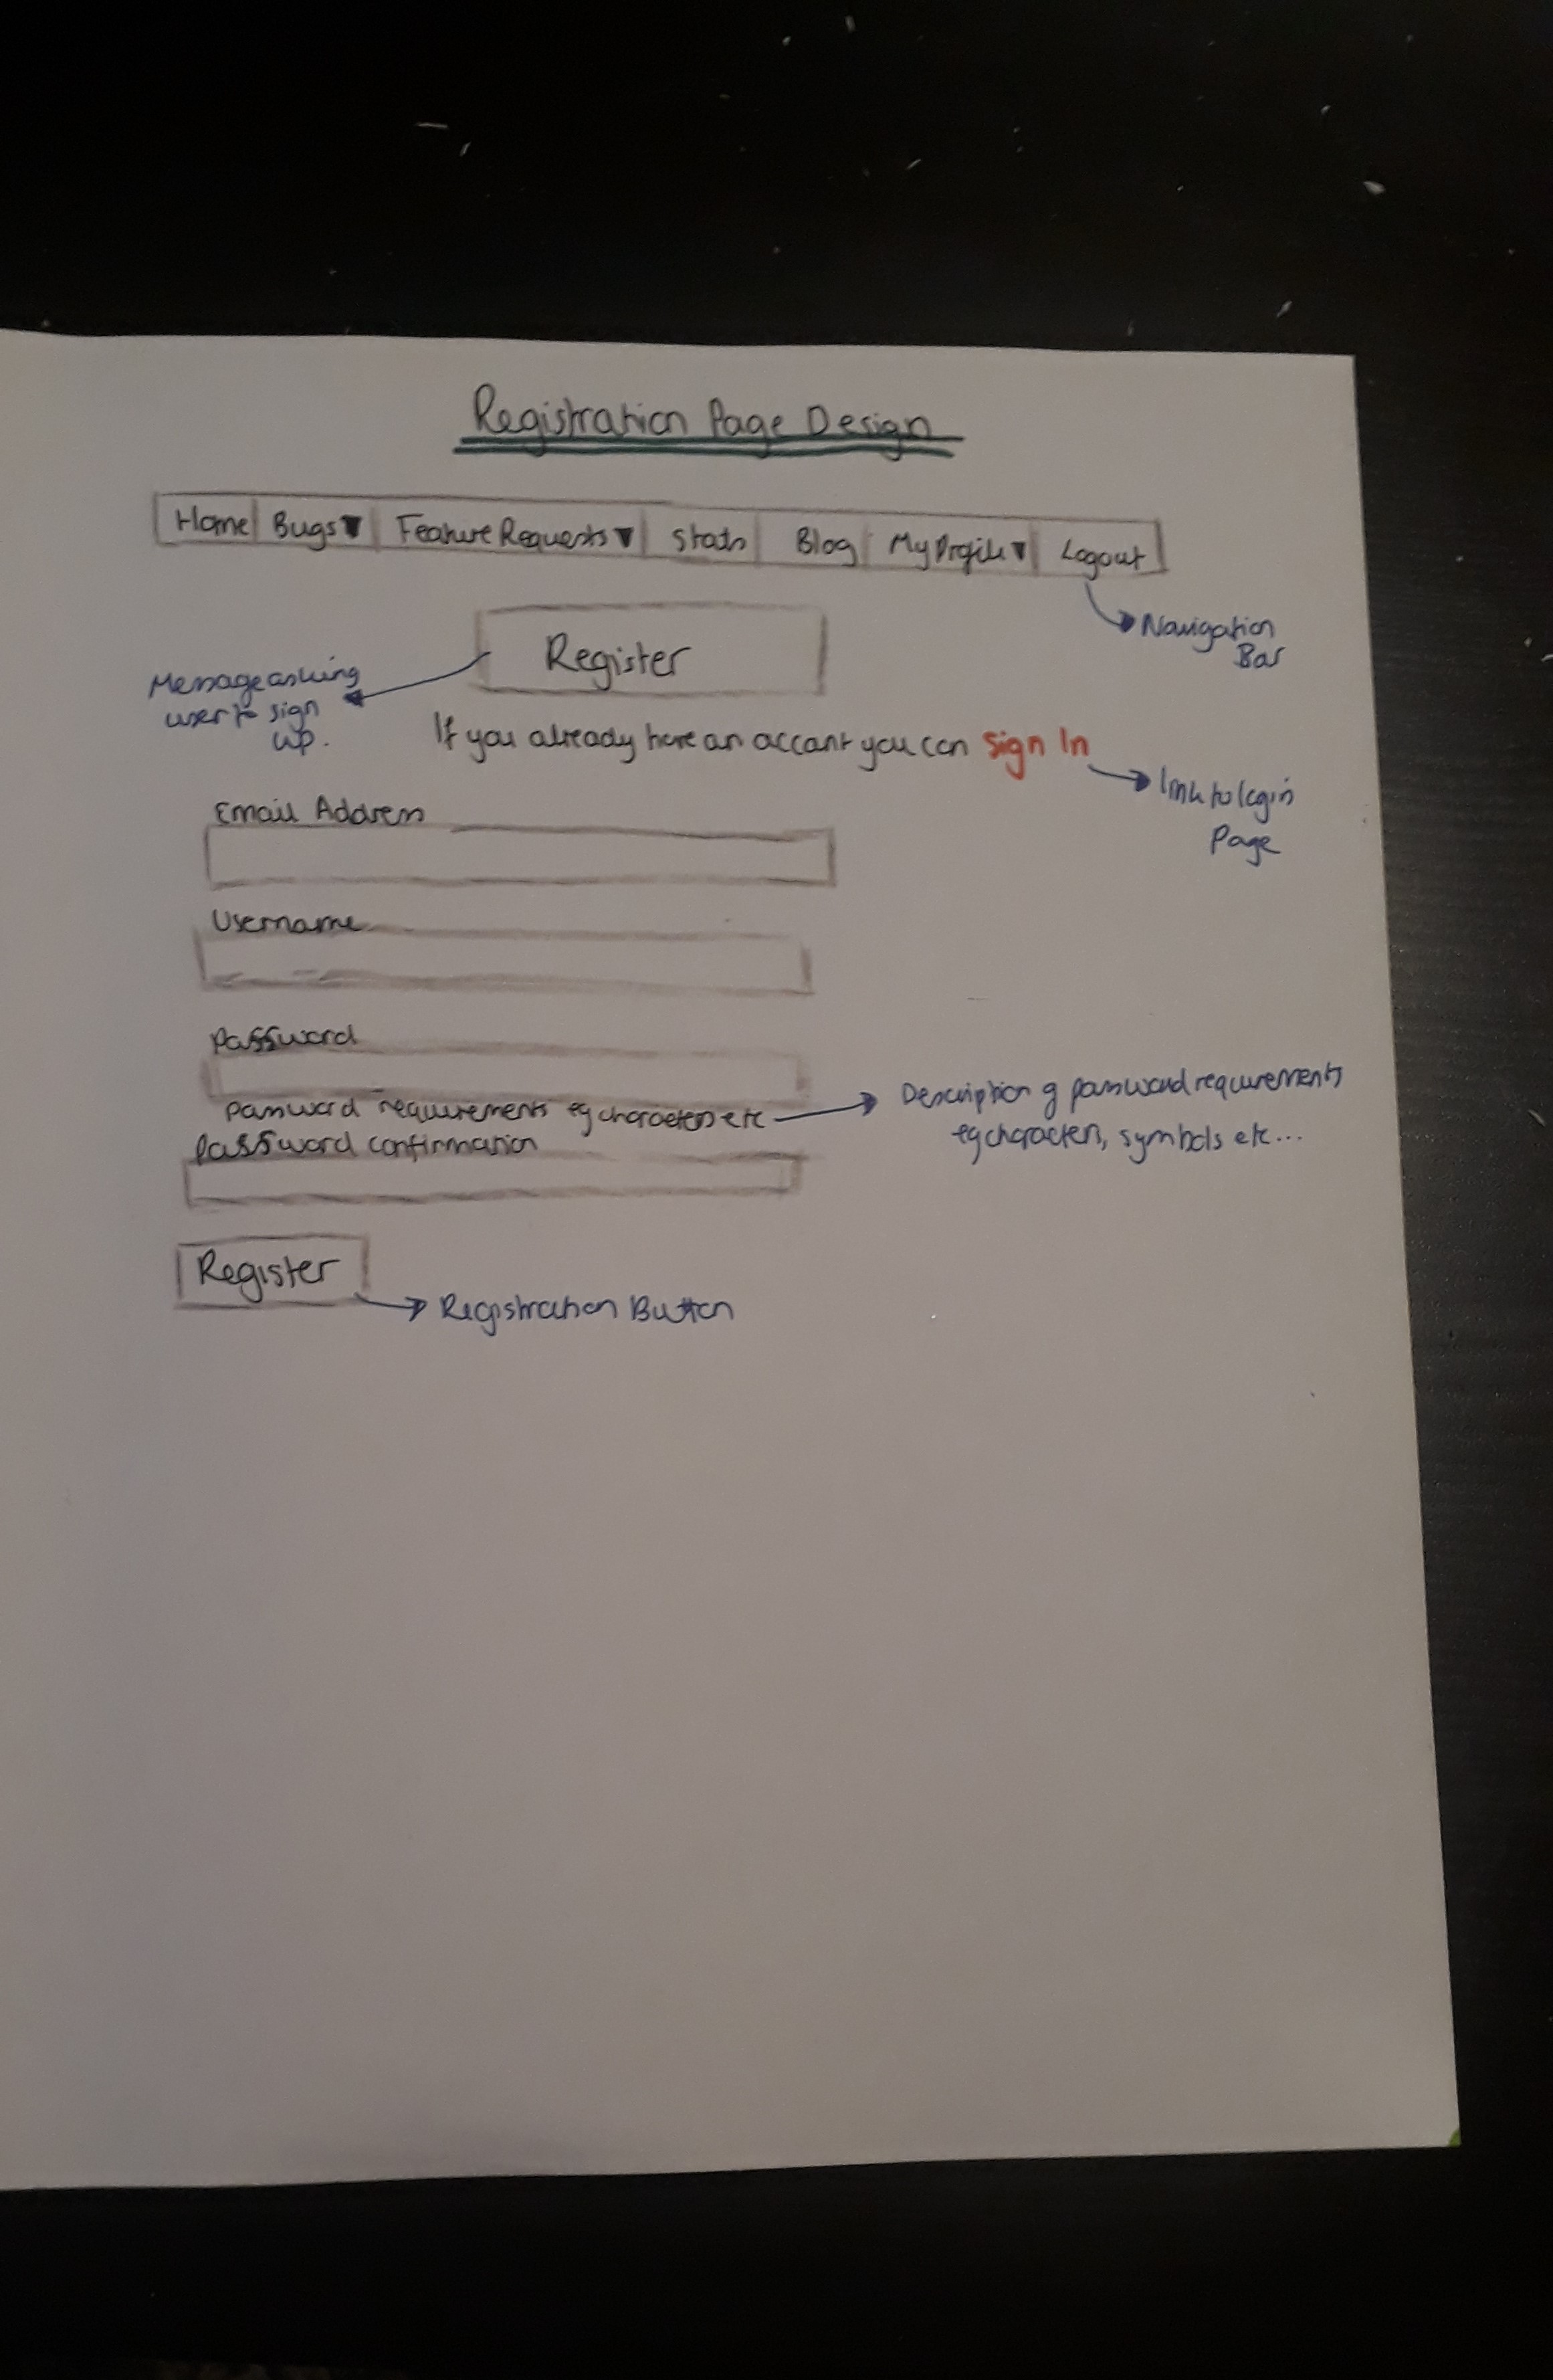 Registration Page Design
Home Bugs▼ Feature Requests▼ Stats Blog My Profile▼ Logout
Navigation
Bar
Register
Message asking
user to sign
up.
If you already have an account you can Sign In
link to login
Page
Email Address
Username
Password
Password requirements eg characters etc
Description of password requirements
eg characters, symbols etc...
Password confirmation
Register
Registration Button